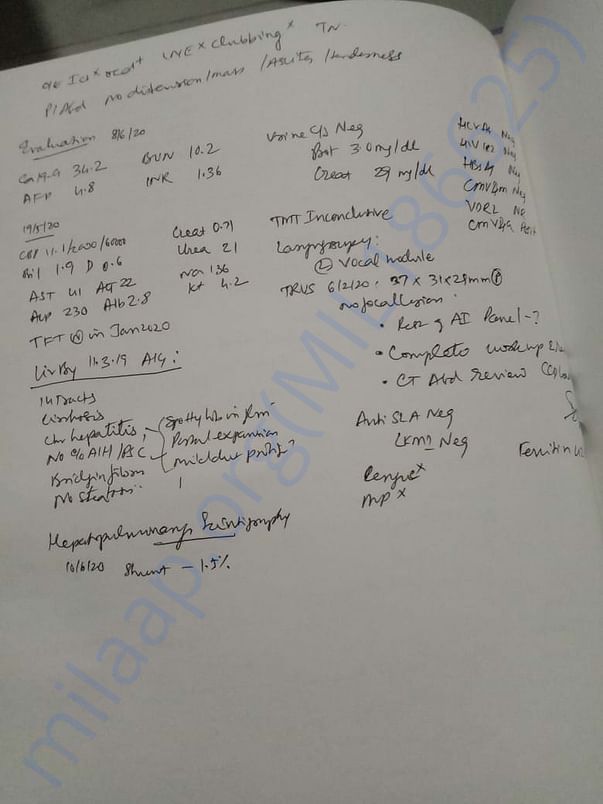 O/E Ict× oed+ LNE× Clubbing×
P/Abd no distension/mass /Ascites /tenderness
Evaluation 8/6/20
Ca19.9 34.2 BUN 10.2
AFP 4.8 INR 1.36
Urine C/s Neg
Prot 3.0 mg/dl
Creat 29 mg/dl
HCV Ab Neg
HIV 1&2 Neg
HBsAg Neg
CMV IgM Neg
VDRL
CMV IgG
19/5/20
CBP 11.1/2000/60000 Creat 0.71
Bil 1.9 D 0.6 Urea 21
AST 41 ALT 22 Na 136
ALP 230 Alb 2.8 K+ 4.2
TFT (N) in Jan 2020
TMT Inconclusive
Laryngoscopy:
(L) Vocal nodule
TRUS 6/2/20: 37 x 31x29mm
no focal lesion
• Rest of AI Panel - ?
• Complete workup
• CT Abd Review
Liv Bx 11.3.19 AIG:
Cirrhosis
Chr hepatitis,
No e/o AIH/PBC
Bridging fibrosis
No steatosis
Portal expansion
mild duct prolif?
Anti SLA Neg
LKM1 Neg
Ferritin
Dengue×
MP×
Hepatopulmonary Scintigraphy
10/6/20 Shunt - 1.5%
milaap.org(MIL186625)